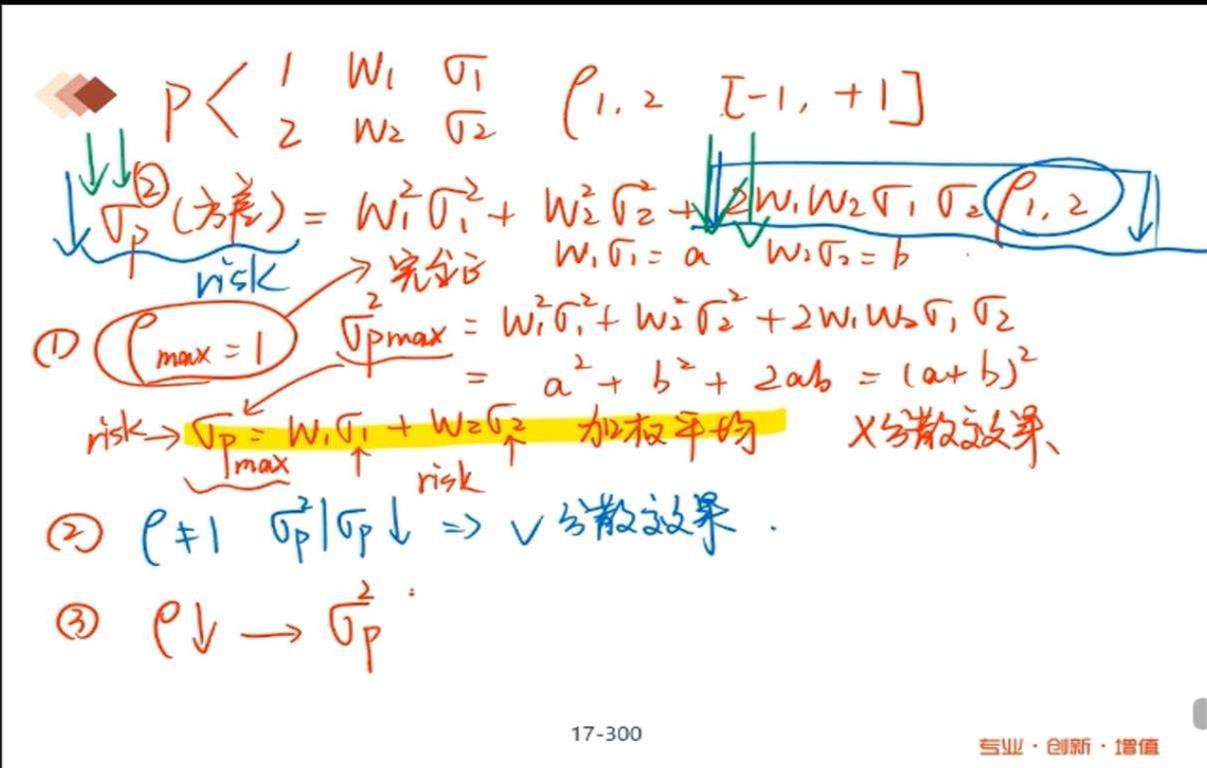 P < 1 W₁ σ₁ ρ₁,₂ [-1, +1]
2 W₂ σ₂
σₚ² (方差) = W₁²σ₁² + W₂²σ₂² + 2W₁W₂σ₁σ₂ρ₁,₂
risk 完全正 W₁σ₁ = a W₂σ₂ = b
① ρmax = 1 σ²pmax = W₁²σ₁² + W₂²σ₂² + 2W₁W₂σ₁σ₂
= a² + b² + 2ab = (a+b)²
risk → σpmax = W₁σ₁ + W₂σ₂ 加权平均 X分散文效果
risk
② ρ ≠ 1 σₚ²|σₚ ↓ => √ 分散文效果.
③ ρ↓ → σₚ²
17-300
专业·创新·增值